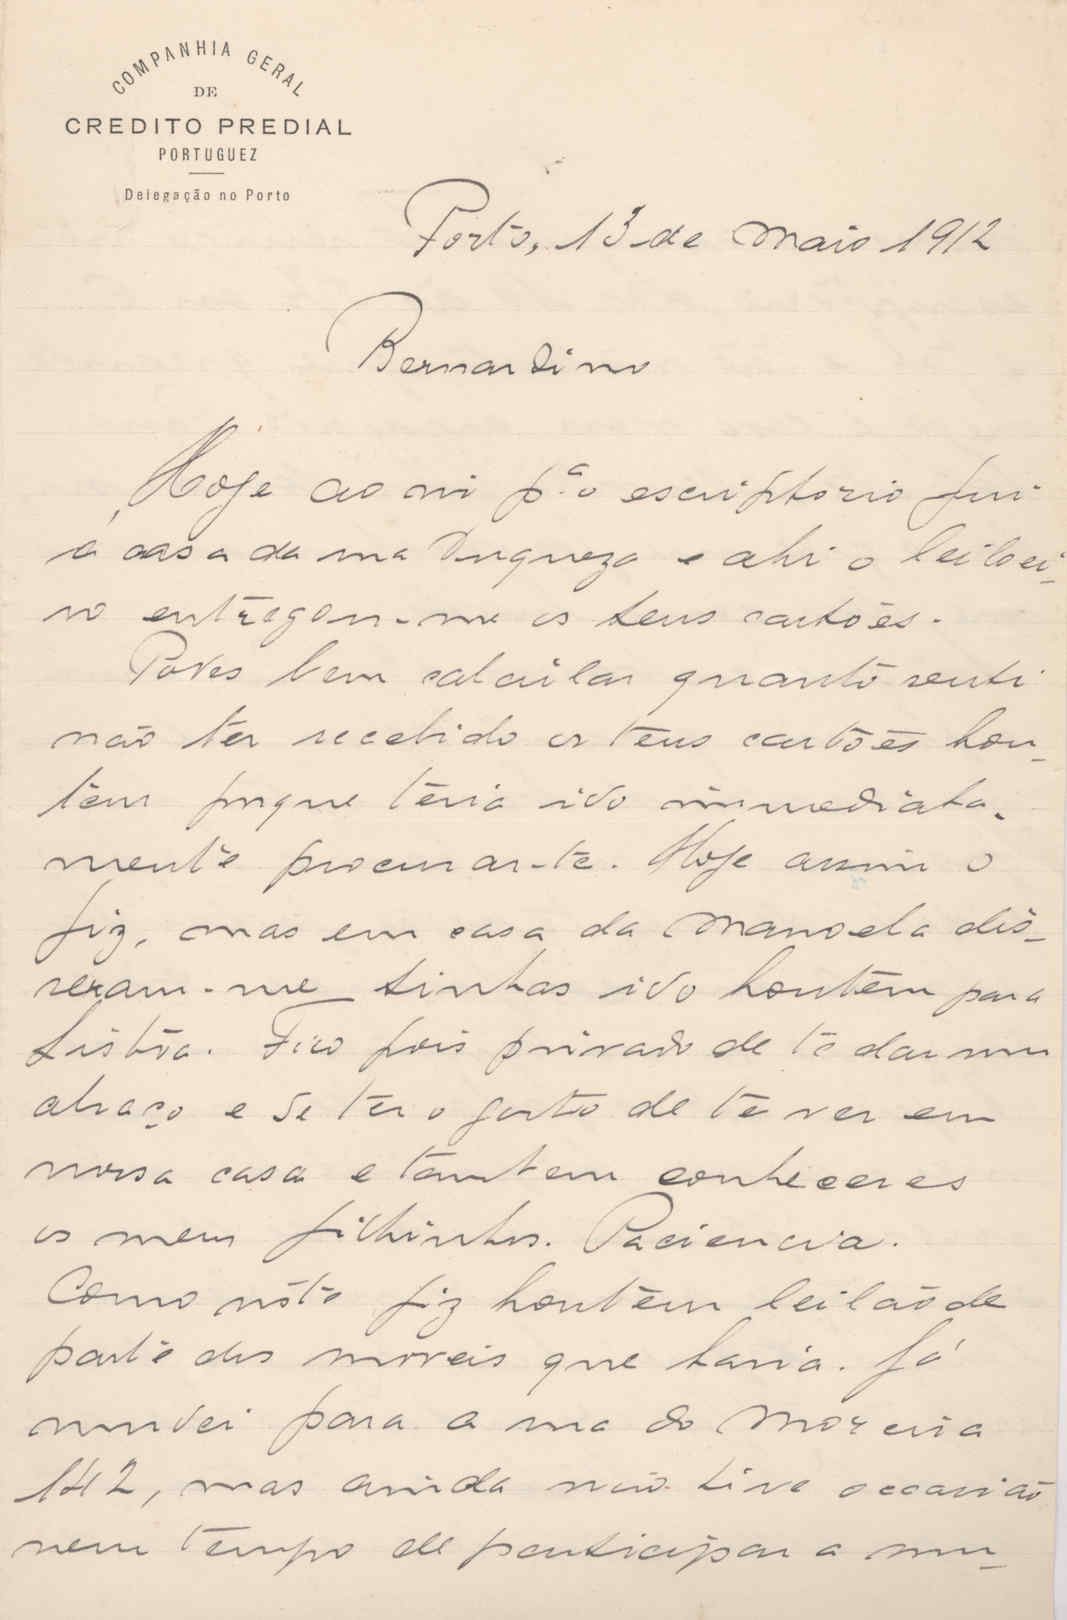 COMPANHIA GERAL
DE
CREDITO PREDIAL
PORTUGUEZ
Delegação no Porto
Porto, 13 de Maio 1912
Bernardino
Hoje ao vir pª o escriptorio fui
á casa da rua Duqueza e ahi o leiloei-
ro entregou-me os teus cartões.
Pódes bem calcular quanto senti
não ter recebido os teus cartões hon-
tem porque teria ido immediata-
mente procurar-te. Hoje assim o
fiz, mas em casa da Manoela dis-
seram-me tinhas ido hontem para
Lisbôa. Fico pois privado de te dar um
abraço e de ter o gosto de te ver em
nossa casa e tambem conheceres
os meus filhinhos. Paciencia.
Como fiz hontem leilão de
parte dos moveis que havia. Já
mudei para a rua do Moreira
142, mas ainda não tive occasião
nem tempo de participar a mu-